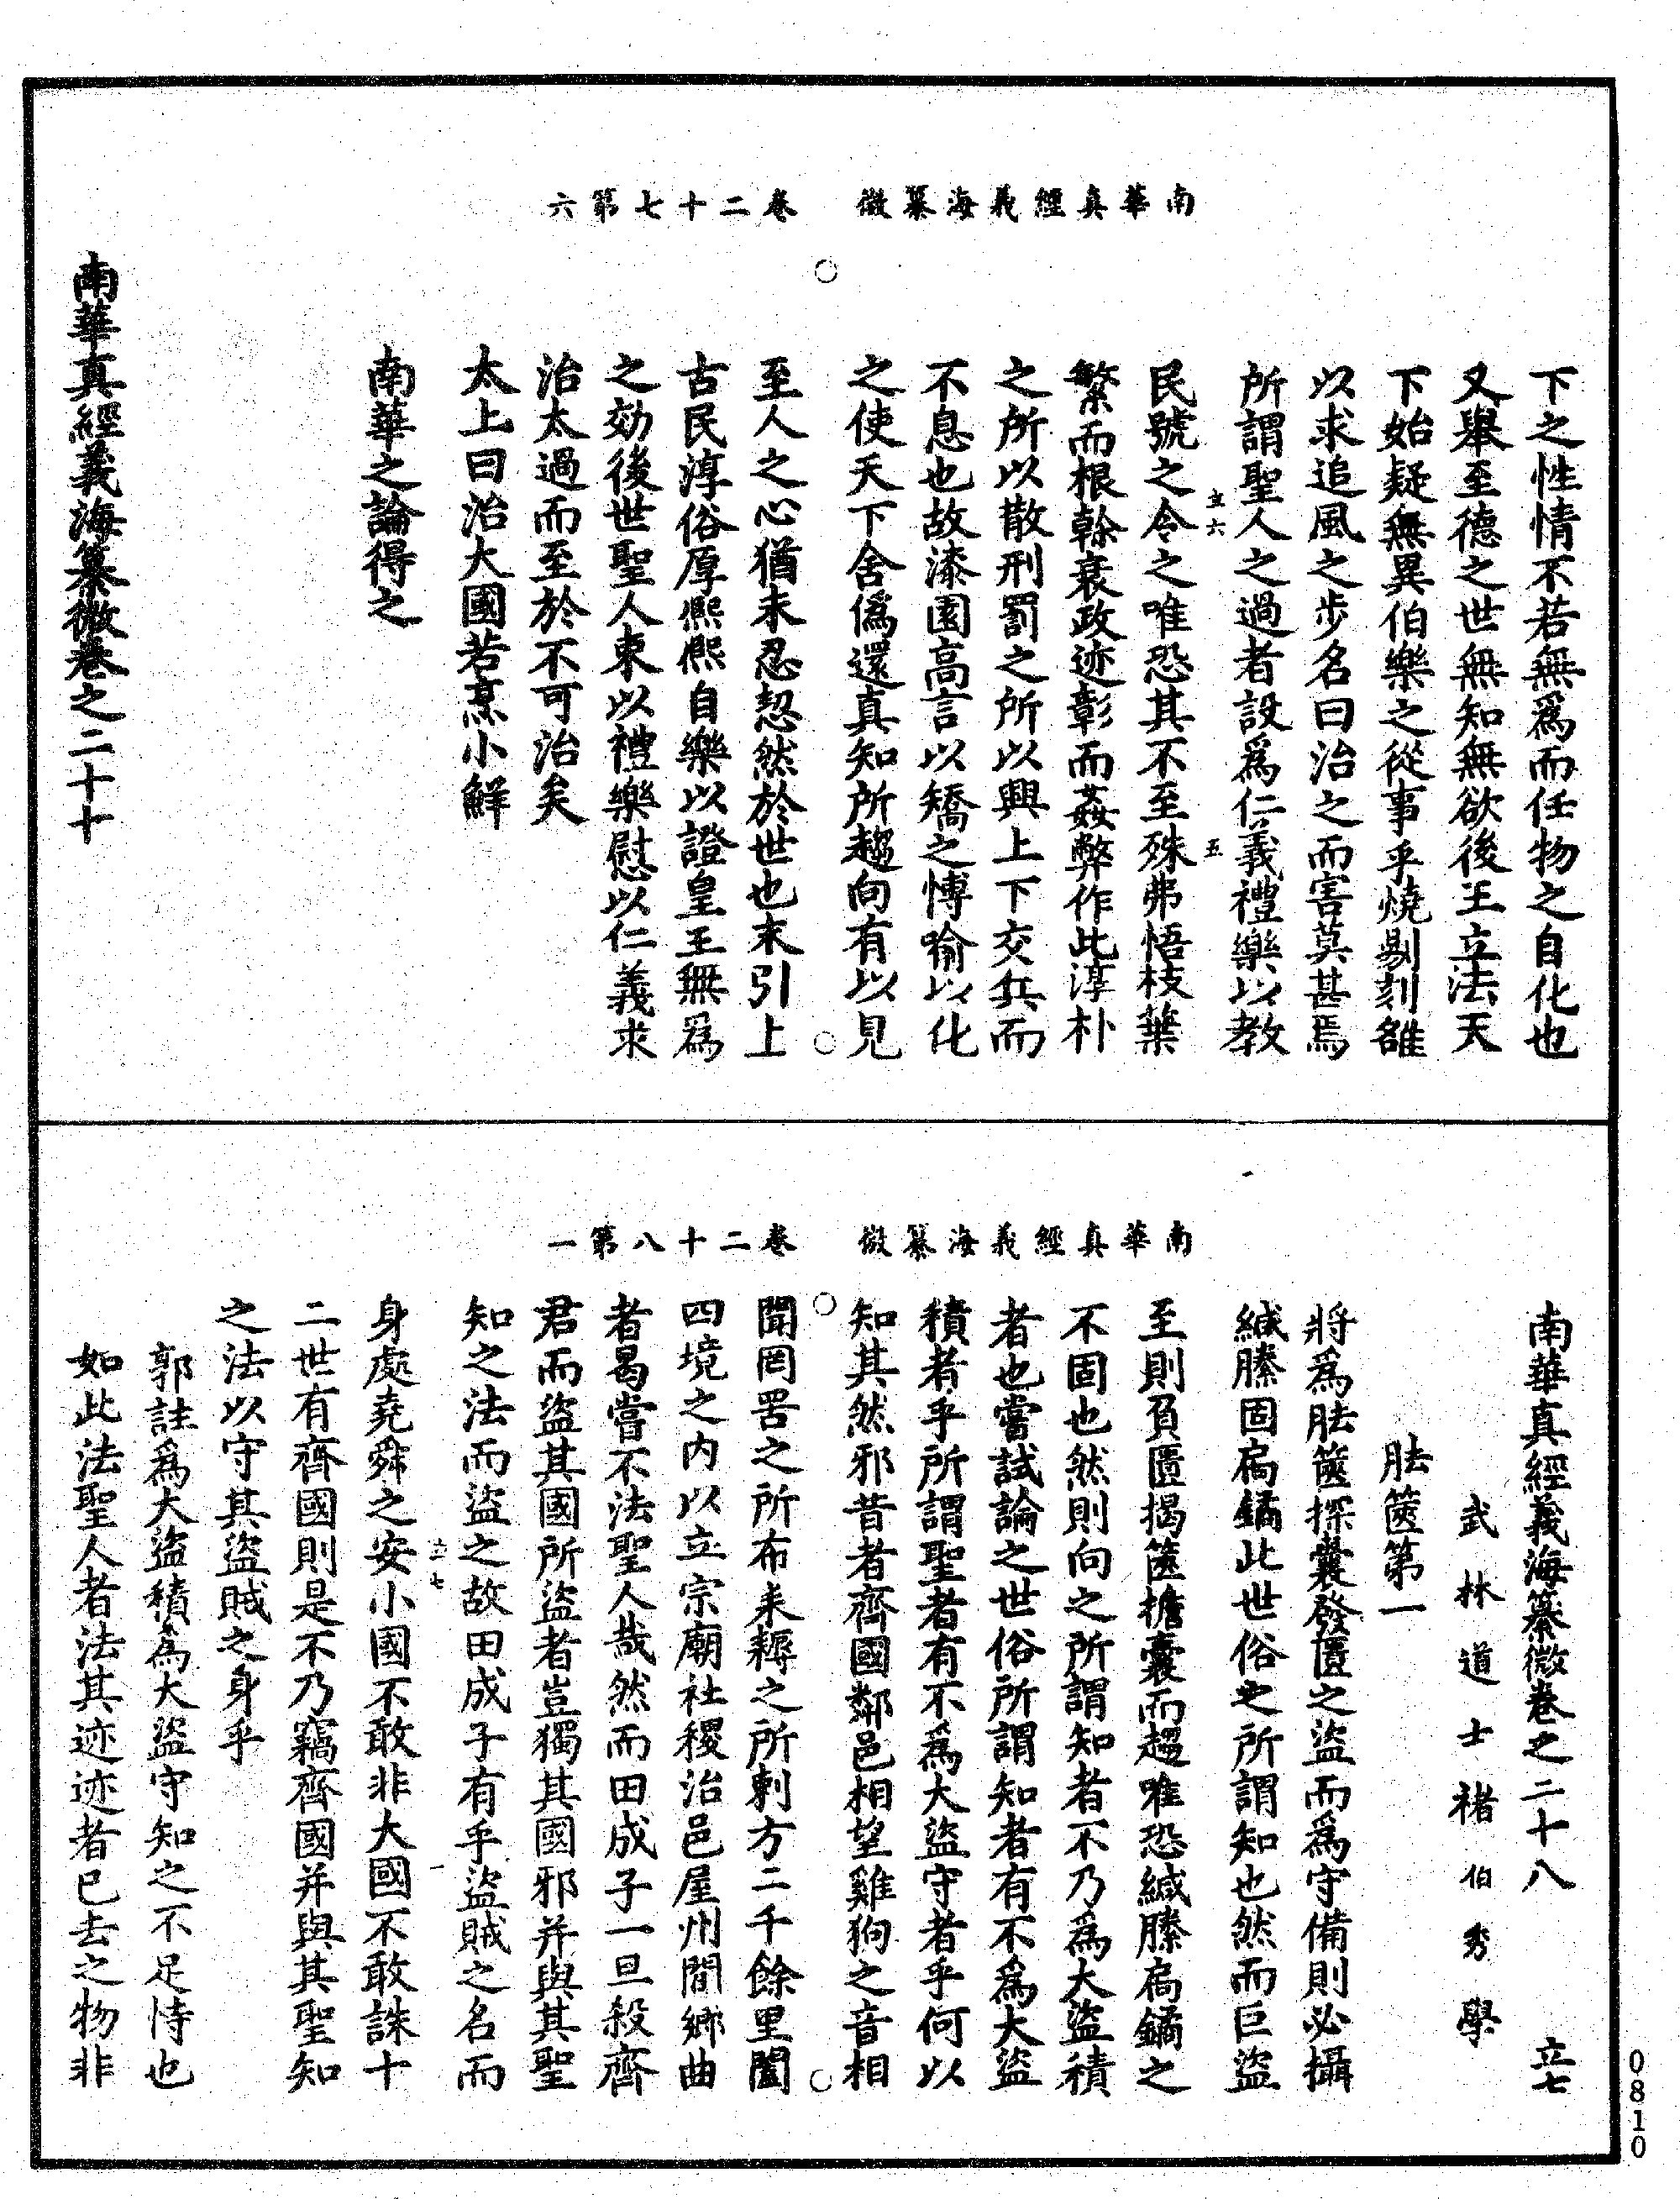 南華真經義海纂微　卷二十七第六
下之性情不若無爲而任物之自化也
又舉至德之世無知無欲後王立法天
下始疑無異伯樂之從事乎燒剔刻雒
以求追風之步名曰治之而害莫甚焉
所謂聖人之過者設爲仁義禮樂以教
立六
五
民號之令之唯恐其不至殊弗悟枝葉
繁而根榦衰政迹彰而姦弊作此淳朴
之所以散刑罰之所以興上下交兵而
不息也故漆園高言以矯之愽喻以化
之使天下舍僞還真知所趨向有以見
至人之心猶未忍恝然於世也末引上
古民淳俗厚熈熈自樂以證皇王無爲
之効後世聖人束以禮樂慰以仁義求
治太過而至於不可治矣
太上曰治大國若烹小鮮
南華之論得之
南華真經義海纂微卷之二十七
南華真經義海纂微　卷二十八第一
南華真經義海纂微卷之二十八　立七
武林道士褚伯秀學
胠篋第一
將爲胠篋探囊發匱之盜而爲守備則必攝
緘縢固扃鐍此世俗之所謂知也然而巨盜
至則負匱揭篋擔囊而趨唯恐緘縢扃鐍之
不固也然則向之所謂知者不乃爲大盜積
者也嘗試論之世俗所謂知者有不爲大盜
積者乎所謂聖者有不爲大盜守者乎何以
知其然邪昔者齊國鄰邑相望雞狗之音相
聞罔罟之所布耒耨之所刺方二千餘里闔
四境之内以立宗廟社稷治邑屋州閭鄉曲
者曷嘗不法聖人哉然而田成子一旦殺齊
君而盜其國所盜者豈獨其國邪并與其聖
知之法而盜之故田成子有乎盜賊之名而
立七
一
身處堯舜之安小國不敢非大國不敢誅十
二世有齊國則是不乃竊齊國并與其聖知
之法以守其盜賊之身乎
郭註爲大盜積爲大盜守知之不足恃也
如此法聖人者法其迹迹者已去之物非
0810